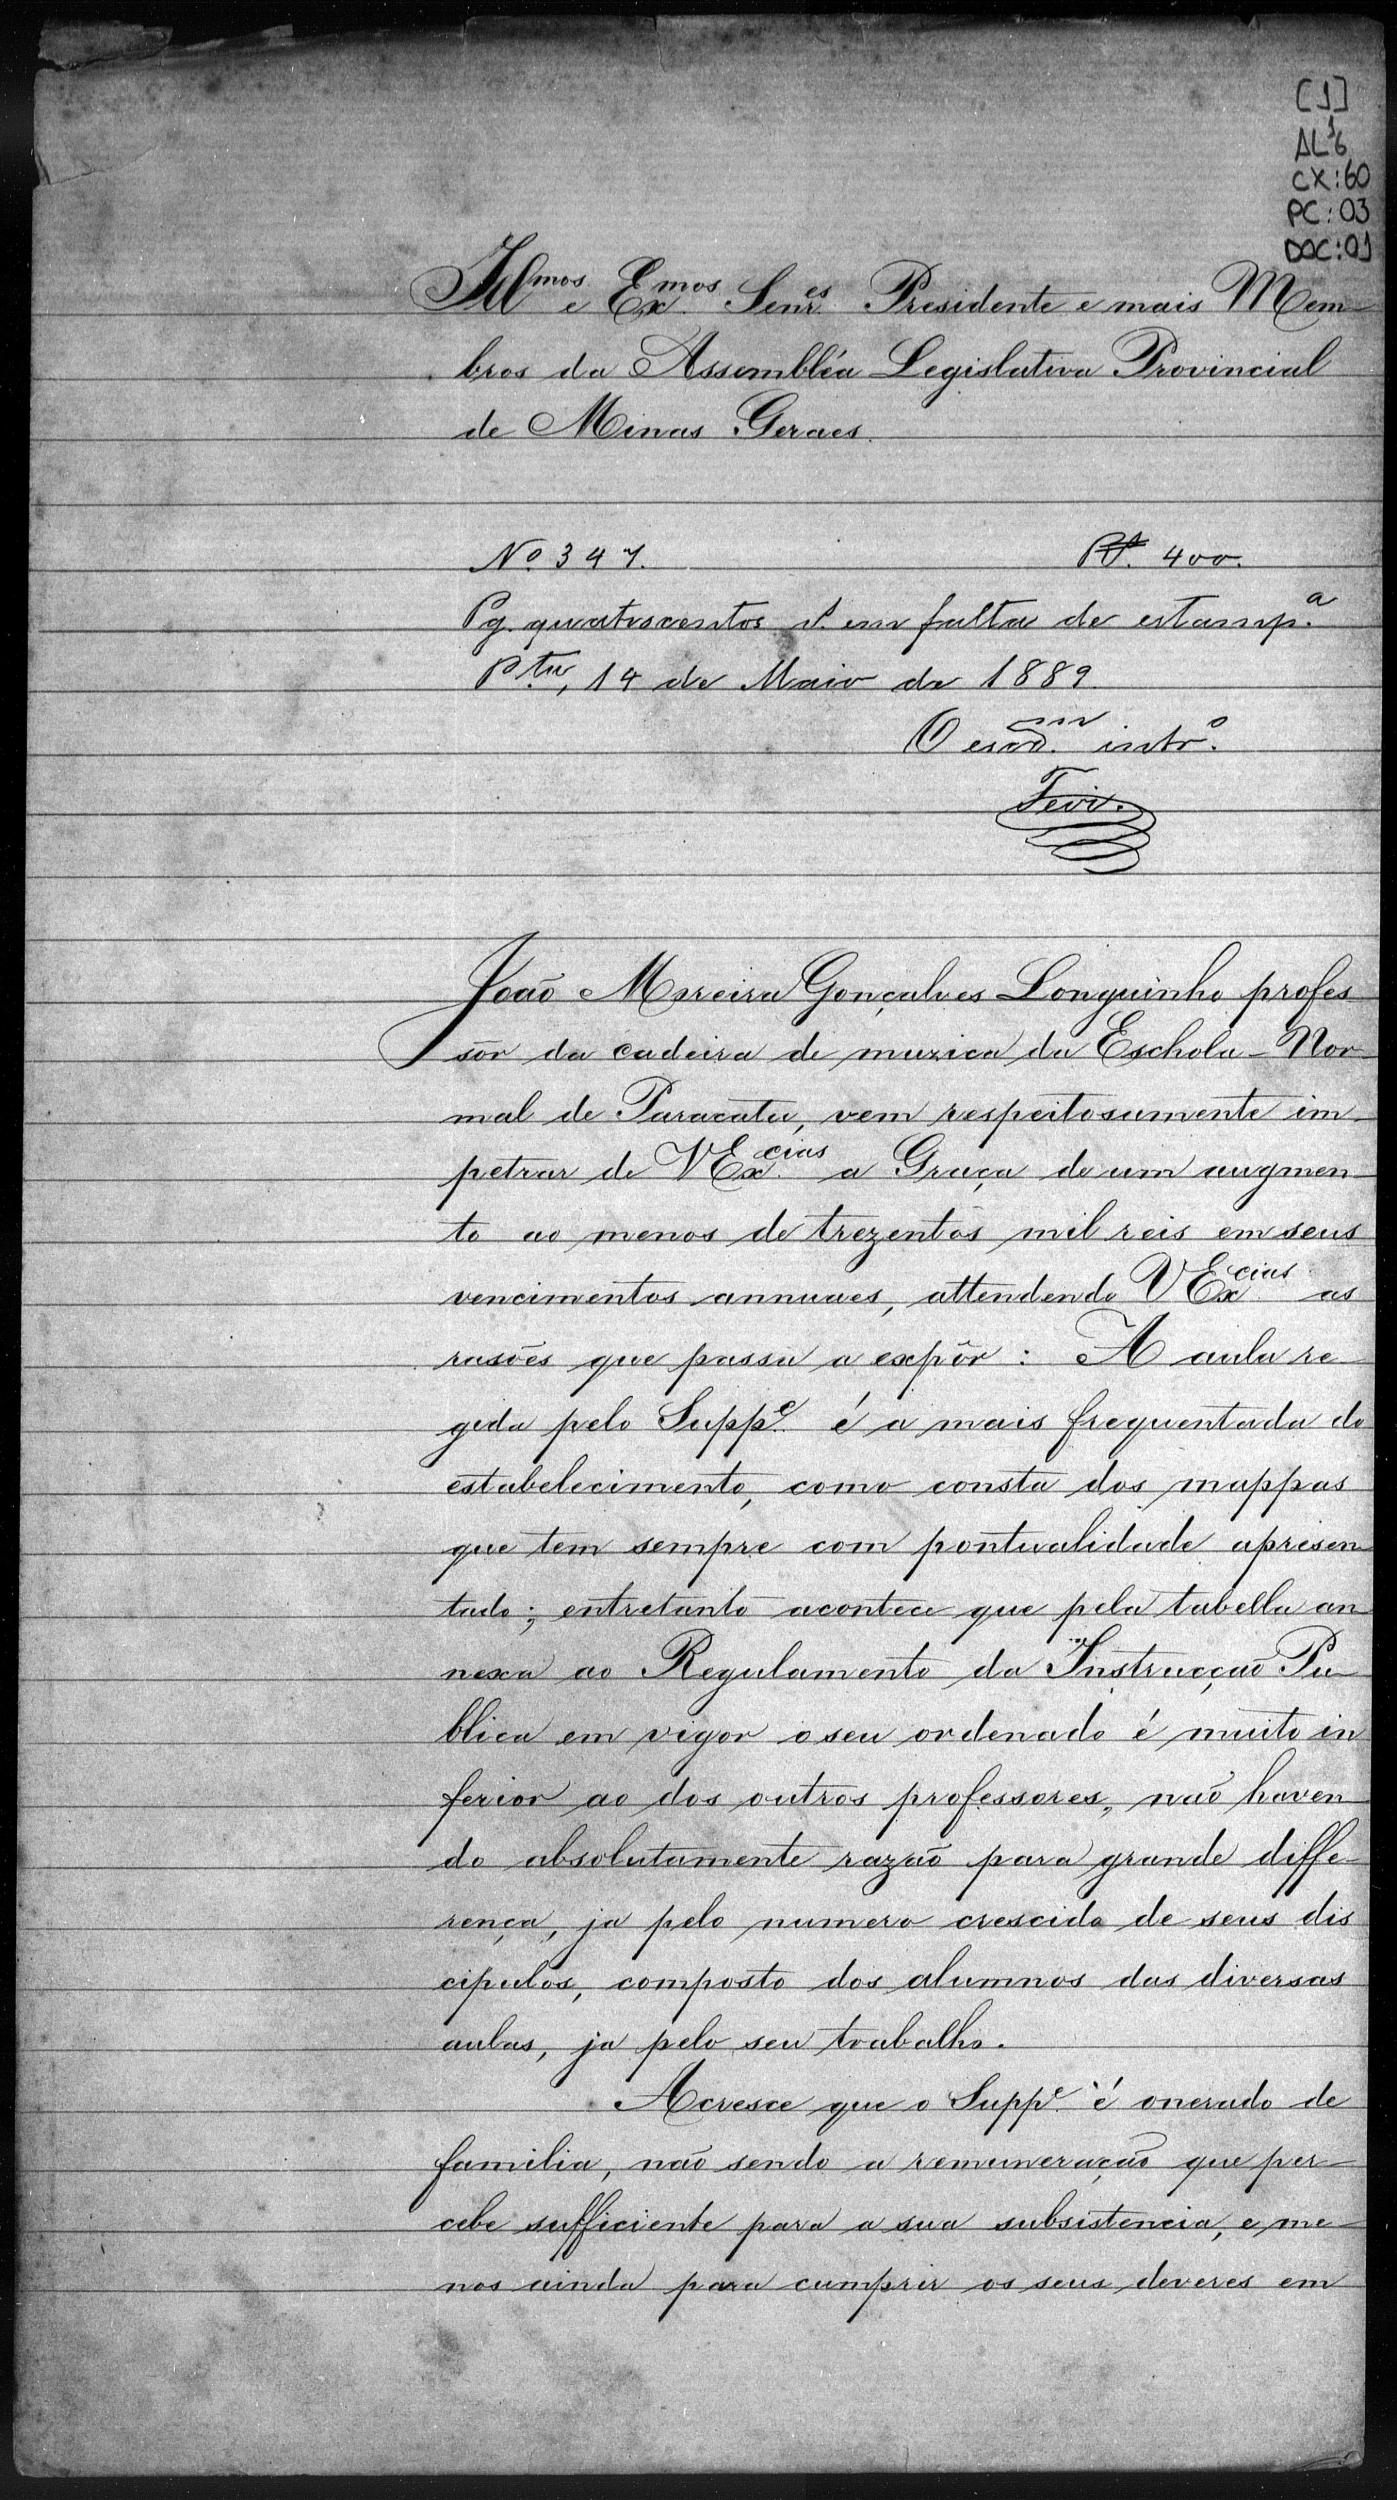 [1]
AL 1/6
CX:60
PC:03
DOC:01
Illmos e Exmos. Senres. Presidente e mais Mem-
bros da Assembléa Legislativa Provincial
de Minas Geraes.
No 347. Rs. 400.
Pg. quatrocentos rs. em falta de estampa.
Ptu, 14 de Maio de 1889.
O escram. intro.
João Moreira Gonçalves Longuinho profes
sor da cadeira de muzica da Eschola-Nor-
mal de Paracatu, vem respeitosamente im-
petrar de VExcias. a Graça de um augmen-
to ao menos de trezentos mil reis em seus
vencimentos annuaes, attendendo VExcias. as
rasões que passa a expôr: A aula re-
gida pelo Suppe. é a mais frequentada do
estabelecimento, como consta dos mappas
que tem sempre com pontualidade apresen
tado; entretanto acontece que pela tabella an
nexa ao Regulamento da Instrucção Pu-
blica em vigor o seu ordenado é muito in
ferior ao dos outros professores, não haven
do absolutamente razão para grande diffe-
rença, ja pelo numero crescido de seus dis
cipulos, composto dos alumnos das diversas
aulas, ja pelo seu trabalho.
Acresce que o Suppe. é onerado de
familia, não sendo a remuneração que per-
cebe sufficiente para a sua subsistencia, e me-
nos ainda para cumprir os seus deveres em